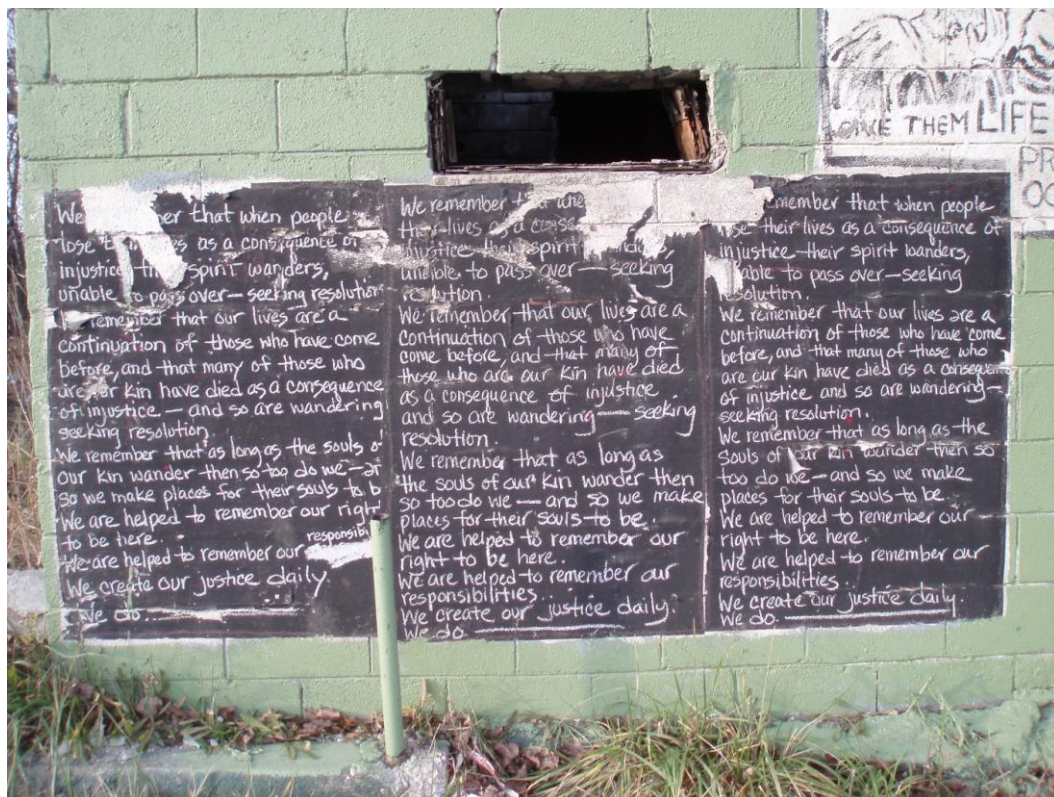 We ber that when people
lose as a consequence of
injustice spirit wanders,
unable to pass over — seeking resolution
remember that our lives are a
continuation of those who have come
before, and that many of those who
are our kin have died as a consequence
of injustice — and so are wandering
seeking resolution
We remember that as long as the souls o
our kin wander then so too do we —
so we make places for their souls to b
We are helped to remember our right
to be here.
responsib
We are helped to remember our
We create our justice daily.
We do.
We remember that
their lives as a
injustice their spirit
unable to pass over — seeking
resolution.
We remember that our lives are a
continuation of those who have
come before, and that many of
those who are our kin have died
as a consequence of injustice
and so are wandering — seeking
resolution.
We remember that as long as
the souls of our kin wander then
so too do we — and so we make
places for their souls to be.
We are helped to remember our
right to be here.
We are helped to remember our
responsibilities..
We create our justice daily.
We do.
member that when people
ose their lives as a consequence of
injustice their spirit wanders,
able to pass over — seeking
resolution.
We remember that our lives are a
continuation of those who have come
before, and that many of those who
are our kin have died as a consequen
of injustice and so are wandering —
seeking resolution.
We remember that as long as the
souls of our kin wander then so
too do we — and so we make
places for their souls to be
We are helped to remember our
right to be here.
We are helped to remember our
responsibilities..
We create our justice daily.
We do.
THEM LIFE
PR
OC